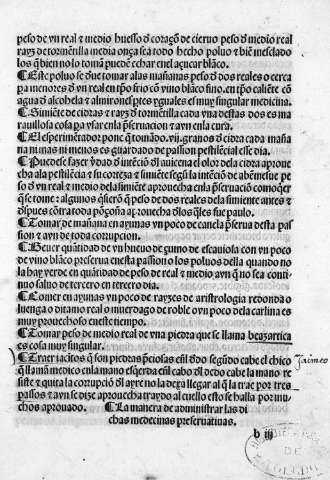 peso de vn real & medio huesso d̃ coraçõ de cieruo peso d̃ medio real
rayz d̃ tormẽtilla media onça sea todo hecho poluo & biẽ mesclado
los q̃ bien no lo tomã puedẽ echar en el açucar blãco.
¶ Este poluo se d̃ue tomar alas mañanas peso d̃ dos reales o cerca
pa menores d̃ vn real en tp̃o frio cõ vino blãco fino. en tp̃o caliẽte cõ
agua d̃ alcohela & almirones ptes yguales es muy singular medicina.
¶ Simiẽte de cidras & rayz d̃ tormẽtilla cada vna destas dos es ma
rauillosa cosa pa vsar en la p̃seruacion & ayn en la cura.
¶ El esperimẽtador pone q̃ tomãdo .vij. granos d̃ cidra cada maña
na ni mas ni menos es guardado de passion pestilẽcial esse dia.
¶ Puedese fazer vd̃ad d̃ intẽciõ d̃l auicena el olor dela cidra aproue
cha ala pestilẽcia & su corteza & simiẽte segũ la intẽciõ de abẽmesue pe
so d̃ vn real & medio dela simiẽte aprouecha en la p̃seruaciõ comoq̃er
que se tome: algunos q̃sierõ q̃ peso de dos reales dela simiente antes &
d̃spues cõtra toda põçoña aprouecha d̃los q̃les fue paulo.
¶ Tomar de mañana en ayunas vn poco de canela p̃serua desta pas
sion & ayn de toda corrupcion.
¶ Beuer quãtidad de vn hueuo de çumo de escauiola con vn poco
de vino blãco preserua en esta passion o los poluos della quando no
la hay verde en quãtidad de peso de real & medio ayn q̃ no sea conti
nuo saluo de tercero en tercero dia.
¶ Comer en ayunas vn poco de rayzes de aristologia redonda o
luenga o ditamo real o muerdago de roble o yn poco dela carlina es
muy prouechoso en este tiempo.
¶ Tomar peso de medio real de vna piedra que se llama beazartica
es cosa muy singular.
¶ Traer jacitos q̃ son piedras p̃ciosas en el d̃do segũdo cabe el chico
q̃ llamã medico en la mano esq̃erda en el cabo d̃l dedo cabe la mano re
siste & quita la corrupciõ d̃l ayre no la dexa llegar al q̃ la trae por tres
passos & ayn se dize aprouecha traydo al cuello esto se halla por mu
chos aprouado. ¶ La manera de administrar las di
chas medecinas preseruatiuas.
b iij